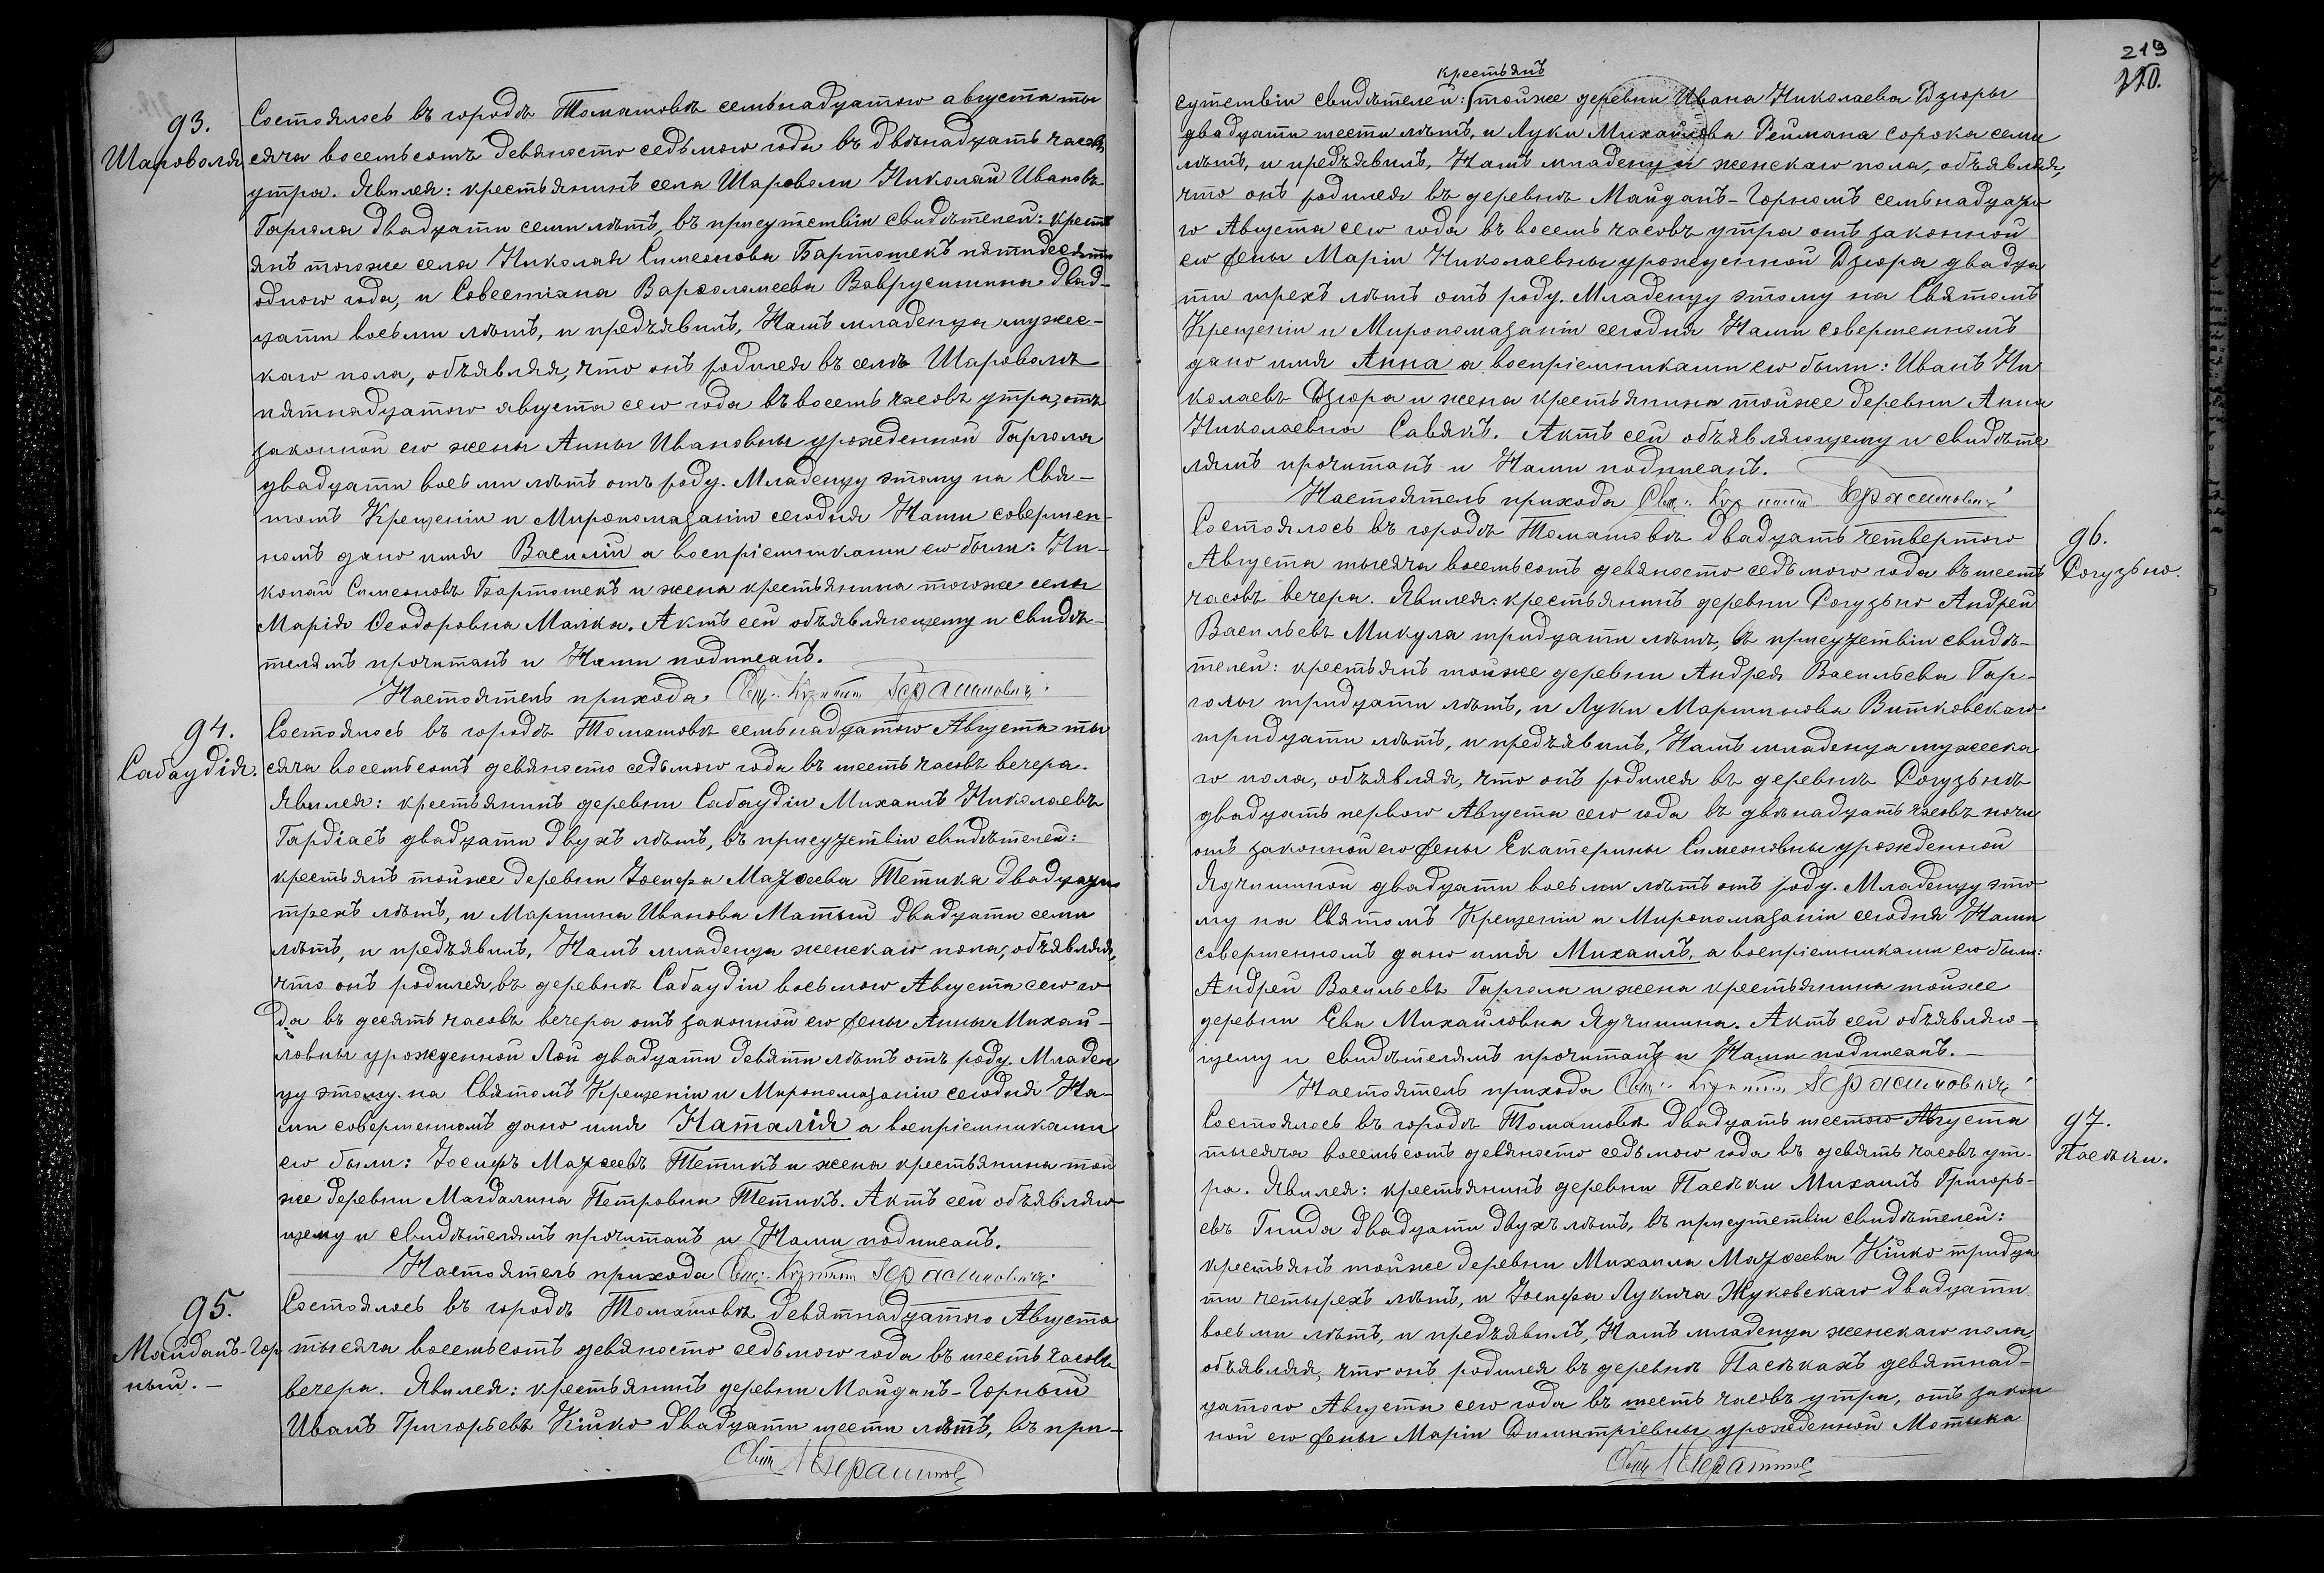 93.
Шароволя
Состоялось въ городѣ Томашовѣ семьнадцатого августа ты
сяча восемьсотъ девяносто седьмого года въ двѣнадцать часовъ
утра. Явился: крестьянинъ села Шароволи Николай Ивановъ
Гаргола двадцати семи лѣтъ, въ присутствіи свидѣтелей: кресть
янъ тогоже села Николая Симеонова Бартошекъ пятидесяти
одного года, и Севестіана Варѳоломеева Ваврусишина двад-
цати восьми лѣтъ, и предъявилъ, Намъ младенца мужес-
каго пола, объявляя, что онъ родился въ селѣ Шароволѣ
пятнадцатого августа сего года въ восемь часовъ утра, отъ
законной его жены Анны Ивановны урожденной Гаргола
двадцати восьми лѣтъ отъ роду. Младенцу этому на Свя-
томъ Крещеніи и Миропомазаніи сегодня Нами совершен-
номъ дано имя Василій а воспріемниками его были: Ни-
колай Симеоновъ Бартошекъ и жена крестьянина тогоже села
Марія Ѳеодоровна Малка. Актъ сей объявляющему и свидѣ-
телямъ прочитанъ и Нами подписанъ.
Настоятель прихода Свящ. Герасимовичъ
94.
Сабаудія.
Состоялось въ городѣ Томашовѣ семьнадцатого Августа ты
сяча восемьсотъ девяносто седьмого года въ шесть часовъ вечера.
Явился: крестьянинъ деревни Сабаудіи Михаилъ Николаевъ
Гардіасъ двадцати двухъ лѣтъ, въ присутствіи свидѣтелей:
крестьянъ тойже деревни Іосифа Матѳеева Тетика двадцати
трехъ лѣтъ, и Мартина Иванова Матый двадцати семи
лѣтъ, и предъявилъ, Намъ младенца женскаго пола, объявляя,
что онъ родился, въ деревнѣ Сабаудіи восьмого Августа сего го
да въ десять часовъ вечера отъ законной его жены Анны Михай-
ловны урожденной Лой двадцати девяти лѣтъ отъ роду. Младен
цу этому на Святомъ Крещеніи и Миропомазаніи сегодня На-
ми совершенномъ дано имя Наталія а воспріемниками
его были: Іосифъ Матѳеевъ Тетикъ и жена крестьянина той
же деревни Магдалина Петровна Тетикъ. Актъ сей объявляю
щему и свидѣтелямъ прочитанъ и Нами подписанъ.
Настоятель прихода Свящ. Герасимовичъ
95.
Майданъ-Гор-
ный. –
Состоялось въ городѣ Томашовѣ девятнадцатого Августа
тысяча восемьсотъ девяносто седьмого года въ шесть часовъ
вечера. Явился: крестьянинъ деревни Майданъ-Горный
Иванъ Григорьевъ Кішко двадцати шести лѣтъ, въ при-
Свящ Герасимов
219
крестьянъ
сутствіи свидѣтелей: тойже деревни Ивана Николаева Дзюры
двадцати шести лѣтъ, и Луки Михайлова Реймана сорока семи
лѣтъ, и предъявилъ, Намъ младенца женскаго пола, объявляя,
что онъ родился въ деревнѣ Майданъ-Горномъ семьнадцато
го Августа сего года въ восемь часовъ утра отъ законной
его жены Маріи Николаевны урожденной Дзюра двадца
ти трехъ лѣтъ отъ роду. Младенцу этому на Святомъ
Крещеніи и Миропомазаніи сегодня Нами совершенномъ
дано имя Анна а воспріемниками его были: Иванъ Ни
колаевъ Дзюра и жена крестьянина тойже деревни Анна
Николаевна Савякъ. Актъ сей объявляющему и свидѣте
лямъ прочитанъ и Нами подписанъ.
Настоятель прихода Свящ. Герасимовичъ
96.
Рогузьно.
Состоялось въ городѣ Томашовѣ двадцать четвертого
Августа тысяча восемьсотъ девяносто седьмого года въ шесть
часовъ вечера. Явился: крестьянинъ деревни Рогузьно Андрей
Васильевъ Микула тридцати лѣтъ, въ присутствіи свидѣ-
телей: крестьянъ тойже деревни Андрея Васильева Гар-
голы тридцати лѣтъ, и Луки Мартинова Витковскаго
тридцати лѣтъ, и предъявилъ, Намъ младенца мужеска
го пола, объявляя, что онъ родился въ деревнѣ Рогузьнѣ
двадцать первого Августа сего года въ двѣнадцать часовъ ночи
отъ законной его жены Екатерины Симеоновны урожденной
Ядчишиной двадцати восьми лѣтъ отъ роду. Младенцу это
му на Святомъ Крещеніи и Миропомазаніи сегодня Нами
совершенномъ дано имя Михаилъ, а воспріемниками его были:
Андрей Васильевъ Гаргола и жена крестьянина тойже
деревни Ева Михайловна Ядчишина. Актъ сей объявляю-
щему и свидѣтелямъ прочитанъ и Нами подписанъ. –
Настоятель прихода Свящ. Герасимовичъ
97.
Пасѣки.
Состоялось въ городѣ Томашовѣ двадцать шестого Августа
тысяча восемьсотъ девяносто седьмого года въ девять часовъ ут-
ра. Явился: крестьянинъ деревни Пасѣки Михаилъ Григорь-
евъ Гнида двадцати двухъ лѣтъ, въ присутствіи свидѣтелей:
крестьянъ тойже деревни Михаила Матѳеева Кішко тридца
ти четырехъ лѣтъ, и Іосифа Лукича Жуковскаго двадцати
восьми лѣтъ, и предъявилъ, Намъ младенца женскаго пола,
объявляя, что онъ родился въ деревнѣ Пасѣкахъ девятнад-
цатого Августа сего года въ шесть часовъ утра, отъ закон
ной его жены Маріи Димитріевны урожденной Мотыка
Свящ Герасимов